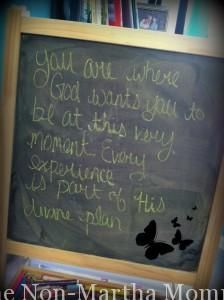 you are where
God wants you to
be at this very
moment. Every
experience
is part of His
divine plan
he Non-Martha Momm